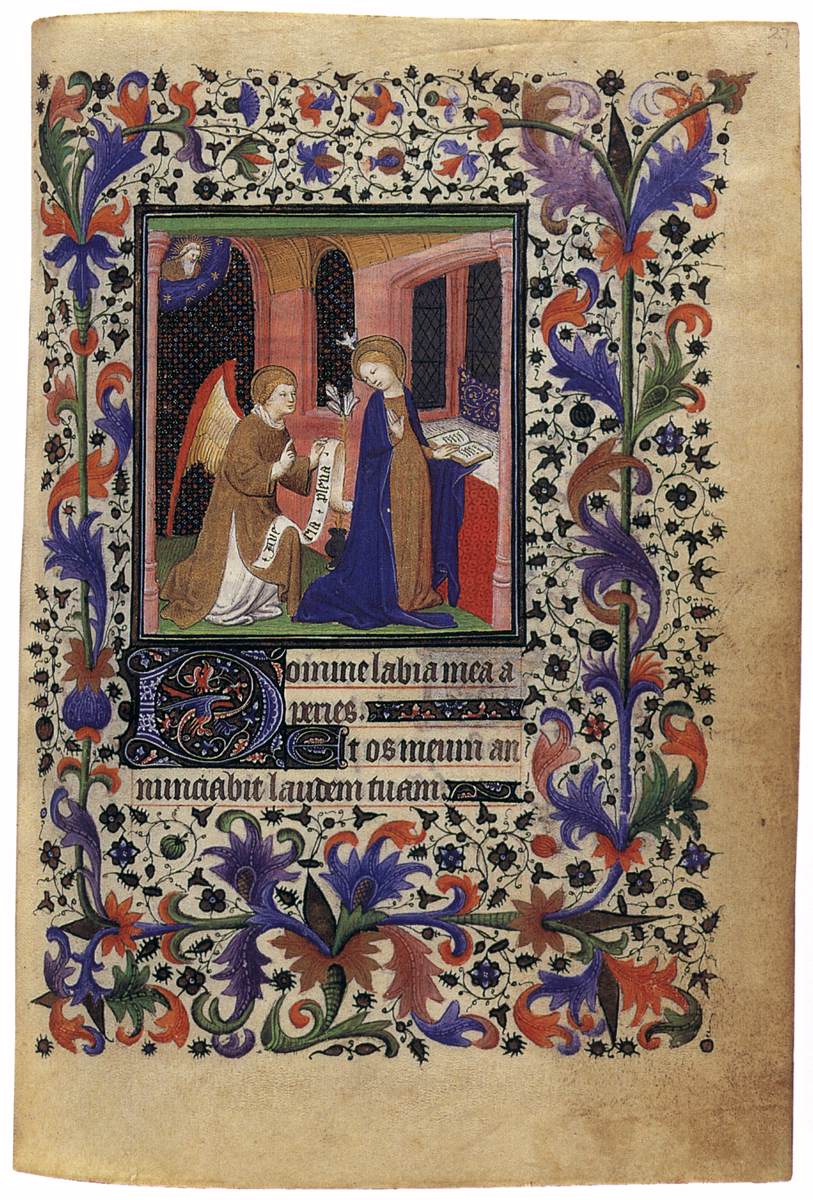 27
aue
plena
Domine labia mea a
peries.
Et os meum an
nunciabit laudem tuam.